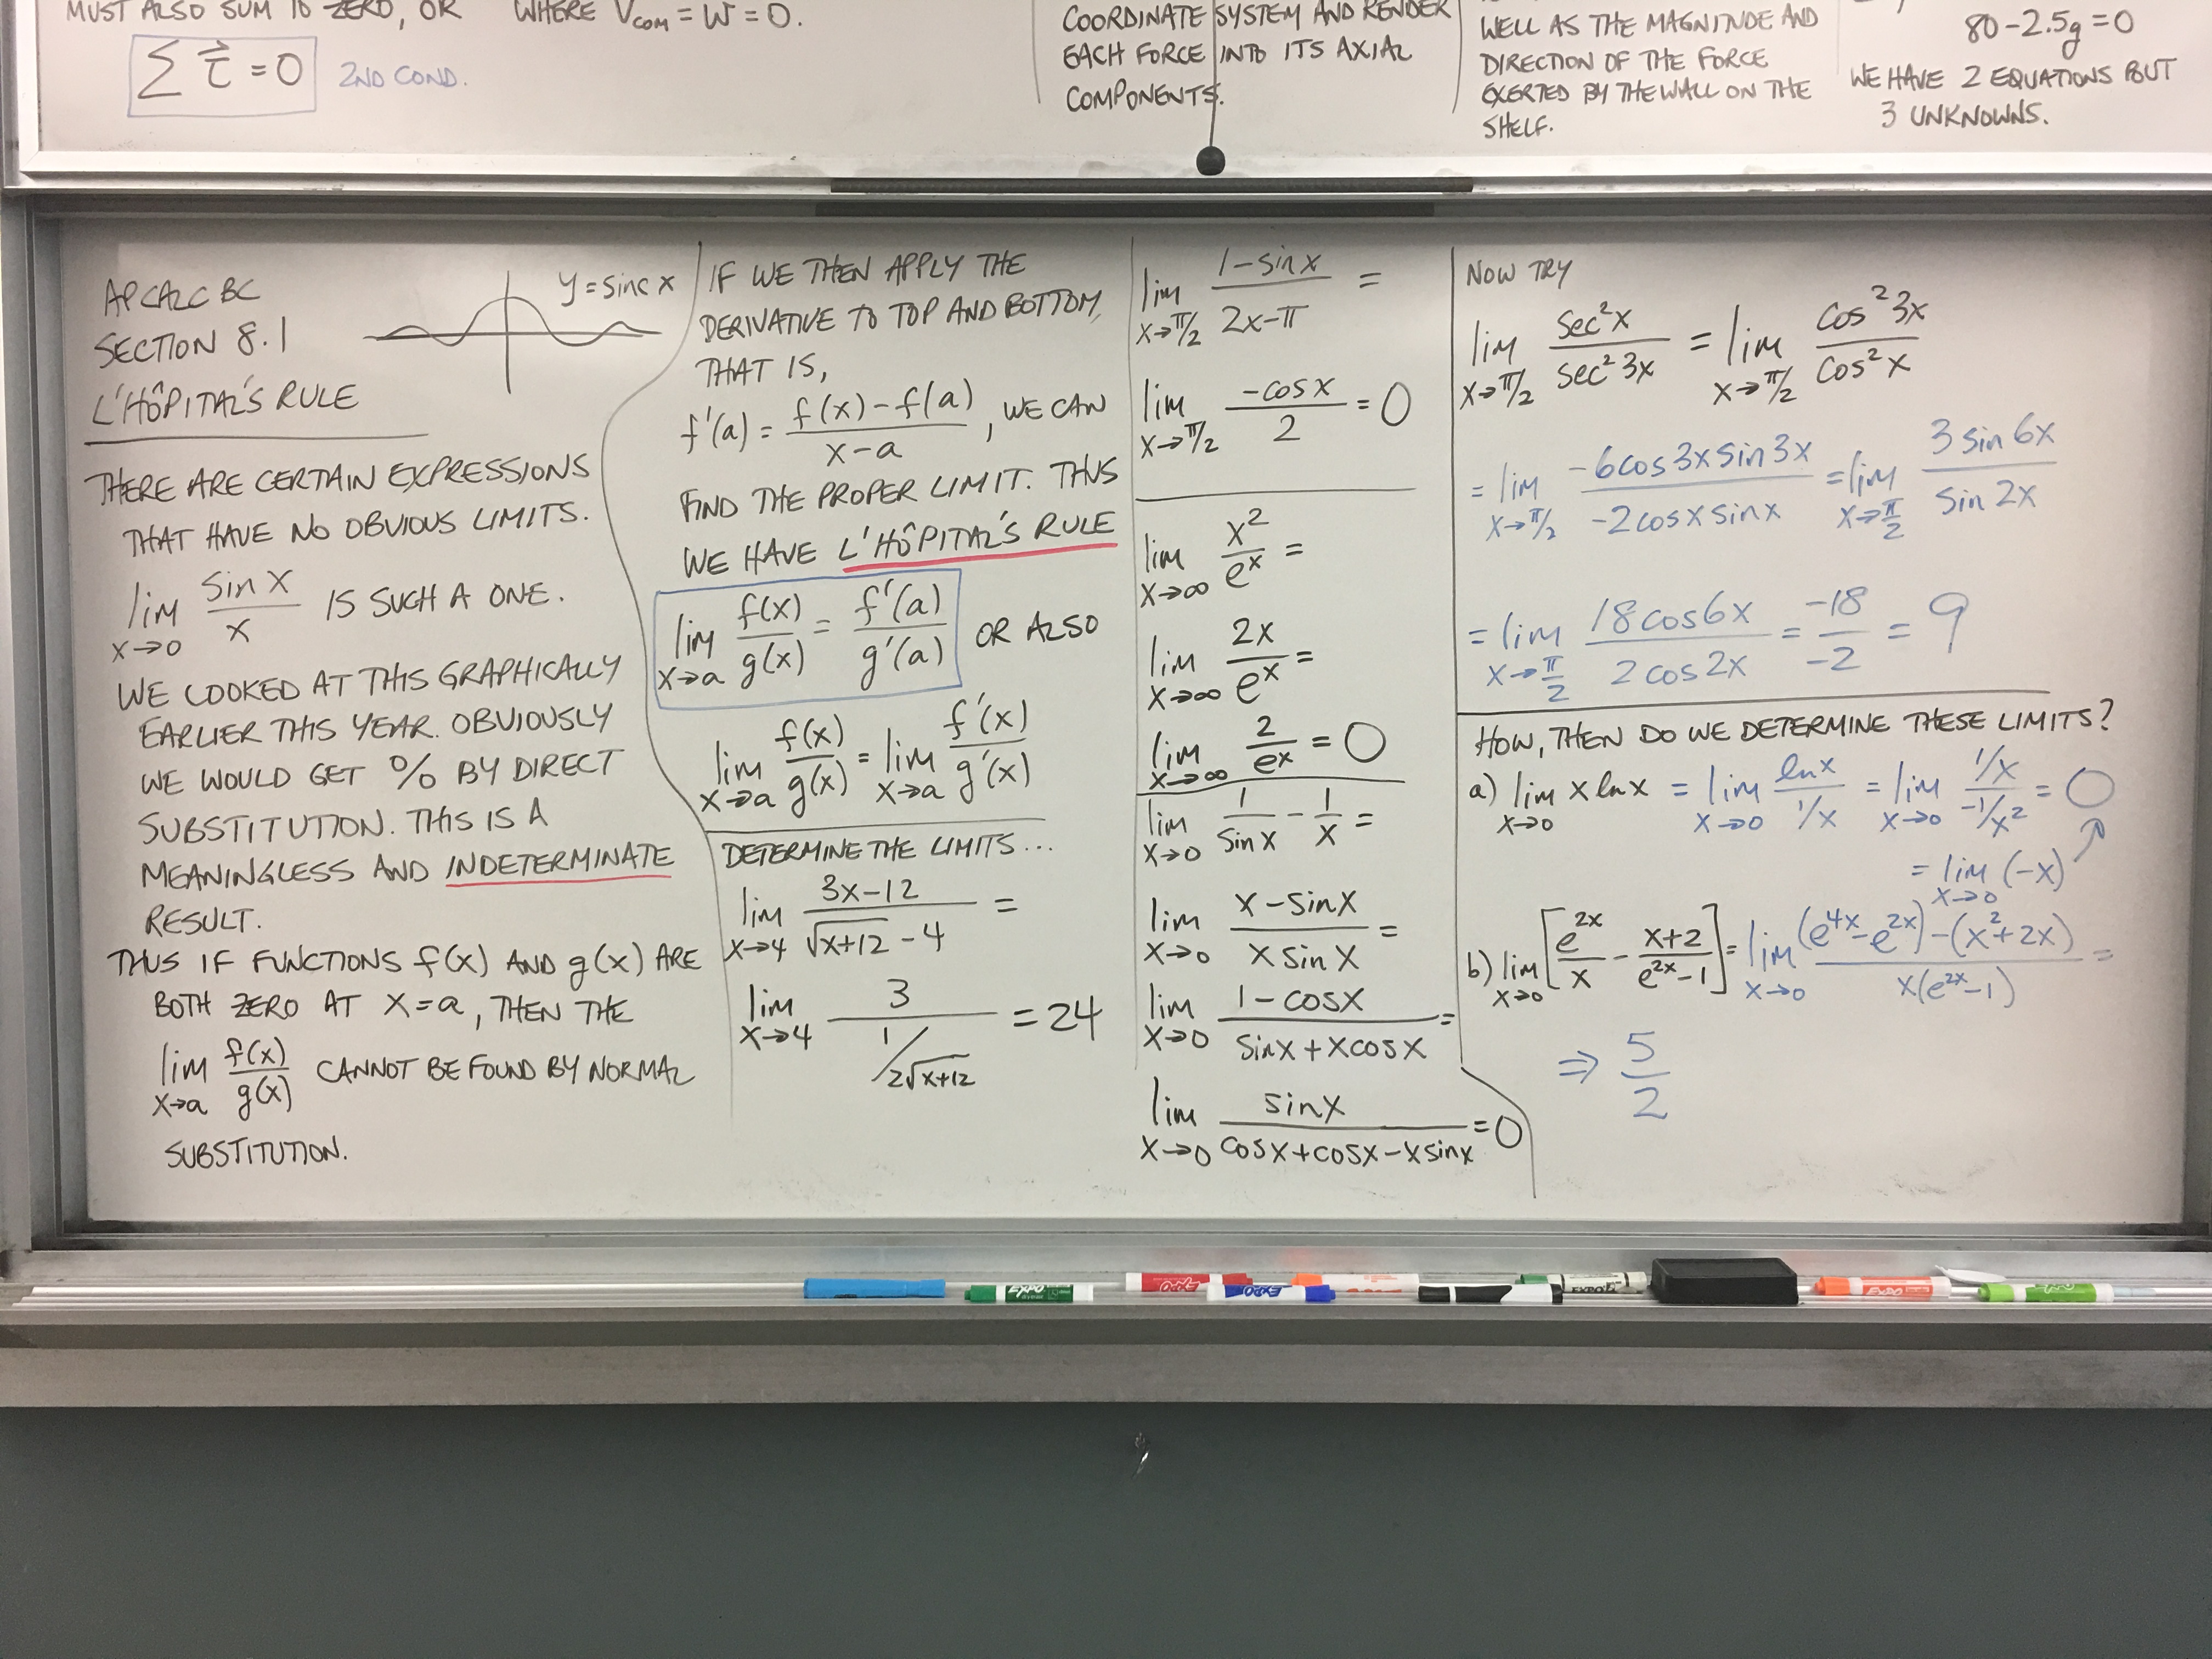 MUST ALSO SUM TO ZERO, OR WHERE V_COM = W = 0.
∑ τ⃗ = 0 2ND COND.
COORDINATE SYSTEM AND RENDER
EACH FORCE INTO ITS AXIAL
COMPONENTS.
WELL AS THE MAGNITUDE AND
DIRECTION OF THE FORCE
EXERTED BY THE WALL ON THE
SHELF.
80 - 2.5g = 0
WE HAVE 2 EQUATIONS BUT
3 UNKNOWNS.
AP CALC BC
SECTION 8.1
L'HÔPITAL'S RULE
y = sinc x
THERE ARE CERTAIN EXPRESSIONS
THAT HAVE NO OBVIOUS LIMITS.
lim x→0 sin x / x IS SUCH A ONE.
WE LOOKED AT THIS GRAPHICALLY
EARLIER THIS YEAR. OBVIOUSLY
WE WOULD GET 0/0 BY DIRECT
SUBSTITUTION. THIS IS A
MEANINGLESS AND INDETERMINATE
RESULT.
THUS IF FUNCTIONS f(x) AND g(x) ARE
BOTH ZERO AT X = a, THEN THE
lim x→a f(x)/g(x) CANNOT BE FOUND BY NORMAL
SUBSTITUTION.
IF WE THEN APPLY THE
DERIVATIVE TO TOP AND BOTTOM,
THAT IS,
f'(a) = (f(x) - f(a)) / (x - a), WE CAN
FIND THE PROPER LIMIT. THUS
WE HAVE L'HÔPITAL'S RULE
lim x→a f(x)/g(x) = f'(a)/g'(a) OR ALSO
lim x→a f(x)/g(x) = lim x→a f'(x)/g'(x)
DETERMINE THE LIMITS...
lim x→4 (3x - 12) / (√(x+12) - 4) =
lim x→4 3 / (1/(2√(x+12))) = 24
lim x→π/2 (1 - sin x) / (2x - π) =
lim x→π/2 -cos x / 2 = 0
lim x→∞ x² / eˣ =
lim x→∞ 2x / eˣ =
lim x→∞ 2 / eˣ = 0
lim x→0 1/sin x - 1/x =
lim x→0 (x - sin x) / (x sin x) =
lim x→0 (1 - cos x) / (sin x + x cos x) =
lim x→0 sin x / (cos x + cos x - x sin x) = 0
NOW TRY
lim x→π/2 sec²x / sec²3x = lim x→π/2 cos²3x / cos²x
= lim x→π/2 -6cos3x sin3x / -2cosx sinx = lim x→π/2 3 sin 6x / sin 2x
= lim x→π/2 18 cos 6x / 2 cos 2x = -18/-2 = 9
HOW, THEN DO WE DETERMINE THESE LIMITS?
a) lim x→0 x ln x = lim x→0 ln x / (1/x) = lim x→0 (1/x) / (-1/x²) = 0
= lim x→0 (-x)
b) lim x→0 [e^2x / x - (x+2) / (e^2x - 1)] = lim x→0 ((e^4x - e^2x) - (x² + 2x)) / (x(e^2x - 1)) =
⇒ 5/2
EXPO
EXPO
EXPO
EXPO
EXPO
EXPO